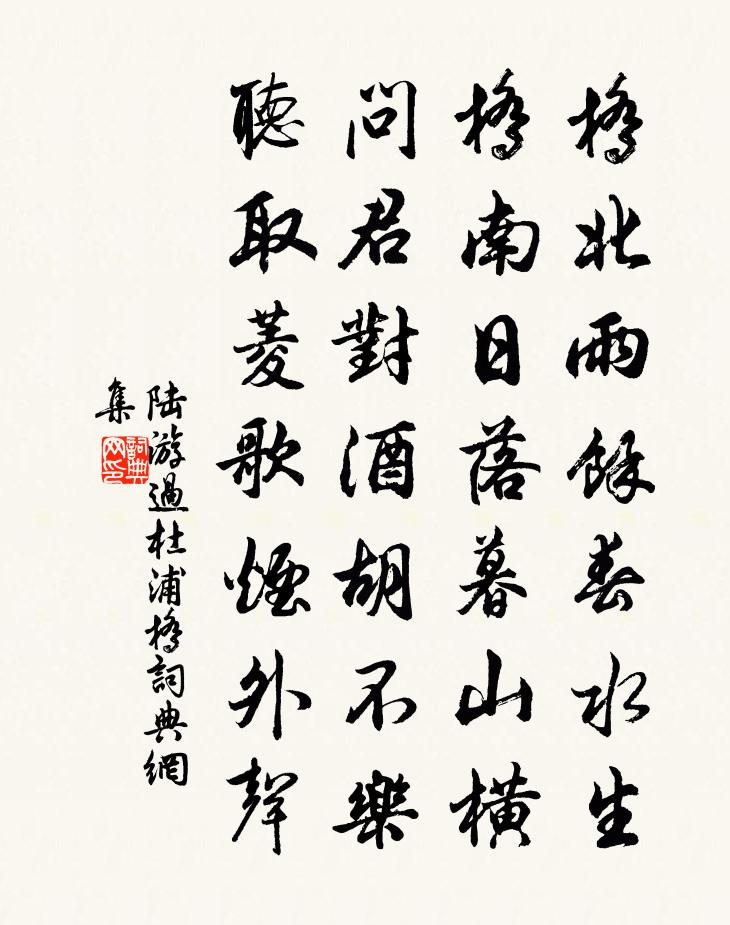 橋北雨餘春水生
橋南日落暮山橫
問君對酒胡不樂
聽取菱歌煙外聲
陆游過杜浦橋詞典網
集
詞典
网印